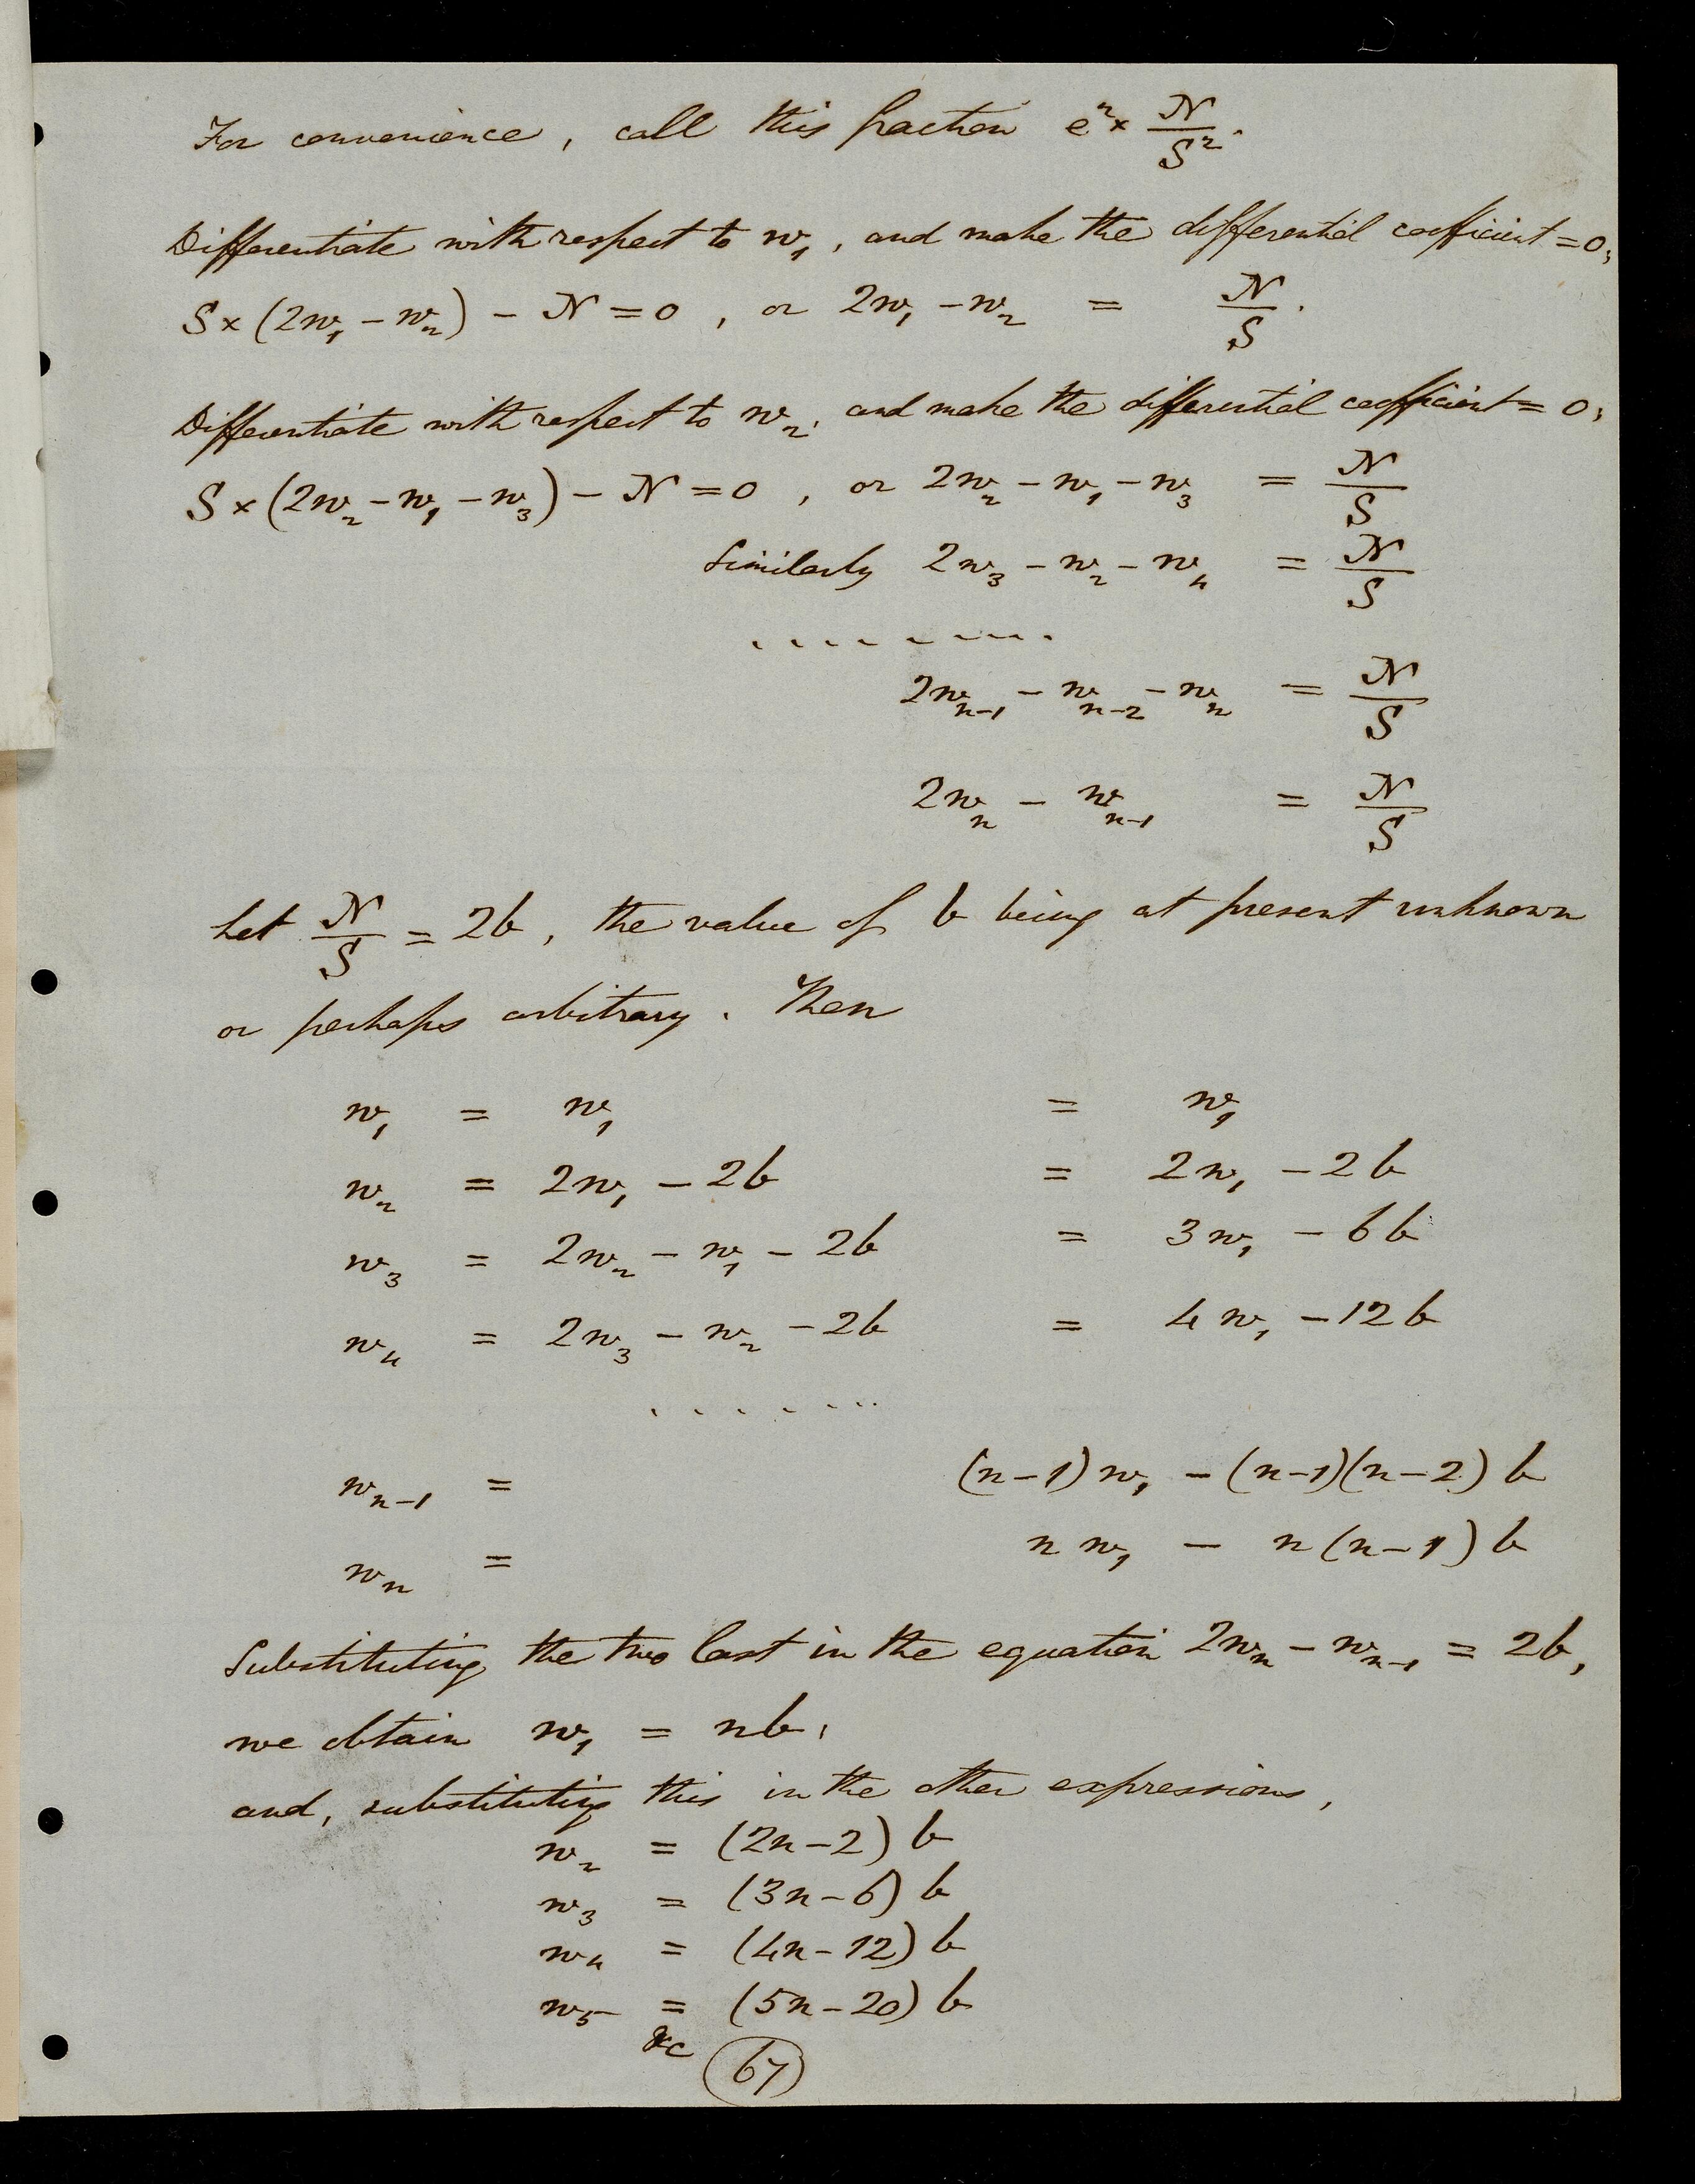 For convenience, call this fraction e² × N/S².
Differentiate with respect to w₁, and make the differential coefficient = 0;
S × (2w₁ − w₂) − N = 0, or 2w₁ − w₂ = N/S.
Differentiate with respect to w₂, and make the differential coefficient = 0;
S × (2w₂ − w₁ − w₃) − N = 0, or 2w₂ − w₁ − w₃ = N/S
Similarly 2w₃ − w₂ − w₄ = N/S
. . . . . . . . .
2wₙ₋₁ − wₙ₋₂ − wₙ = N/S
2wₙ − wₙ₋₁ = N/S
Let N/S = 2b, the value of b being at present unknown
or perhaps arbitrary. Then
w₁ = w₁ = w₁
w₂ = 2w₁ − 2b = 2w₁ − 2b
w₃ = 2w₂ − w₁ − 2b = 3w₁ − 6b
w₄ = 2w₃ − w₂ − 2b = 4w₁ − 12b
. . . . . . .
wₙ₋₁ = (n−1)w₁ − (n−1)(n−2)b
wₙ = nw₁ − n(n−1)b
Substituting the two last in the equation 2wₙ − wₙ₋₁ = 2b,
we obtain w₁ = nb,
and, substituting this in the other expressions,
w₂ = (2n−2)b
w₃ = (3n−6)b
w₄ = (4n−12)b
w₅ = (5n−20)b
&c
67